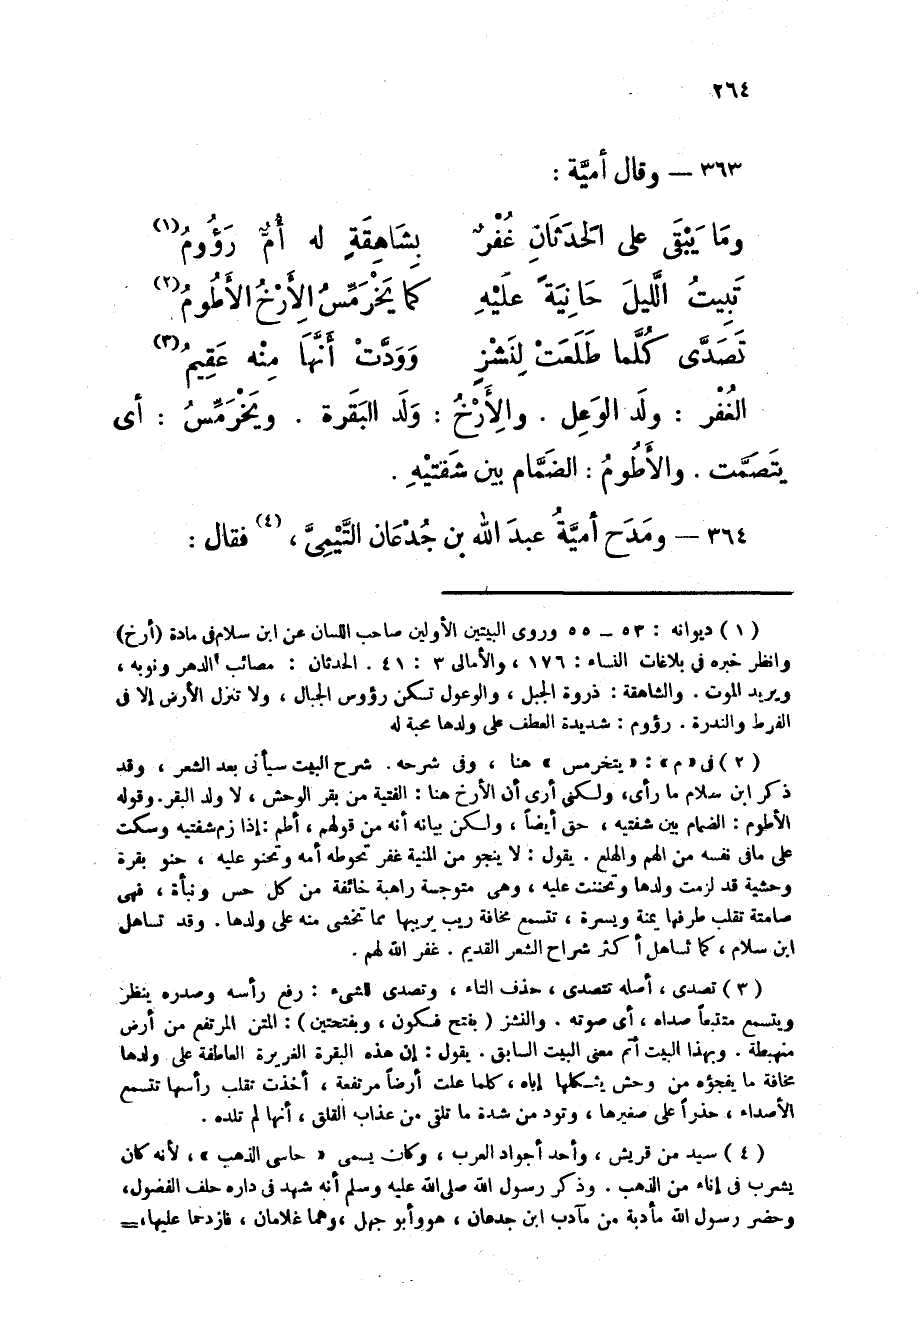 ٢٦٤
٣٦٣ — وقال أميَّة :
ومَا يَبْقَى على الحَدَثَانِ غُفْرٌ بِشَاهِقَةٍ له أُمٌّ رَؤُومُ (١)
تَبِيتُ اللَّيلَ حَانِيَةً عليْهِ كما يَخْرَمِّسُ الإرْخُ الأَطُومُ (٢)
تَصَدَّى كُلَّما طَلَعَتْ لِنَشْزٍ وَوَدَّتْ أَنَّهَا مِنْه عَقِيمُ (٣)
الغُفْر : ولَد الوَعِل . والإِرْخُ : وَلَد البَقَرة . ويَخْرَمِّسُ : أى
يتَصَمَّت . والأَطُومُ : الضَمَّام بين شَفَتيْهِ .
٣٦٤ — ومَدَح أميَّةُ عبدَ الله بن جُدْعَان التَّيْمِىَّ ، (٤) فقال :
(١) ديوانه : ٥٣ – ٥٥ وروى البيتين الأولين صاحب اللسان عن ابن سلام فى مادة (أرخ)
وانظر خبره فى بلاغات النساء : ١٧٦ ، والأمالى ٣ : ٤١ . الحدثان : مصائب الدهر ونوبه ،
ويريد الموت . والشاهقة : ذروة الجبل ، والوعول تسكن رؤوس الجبال ، ولا تنزل الأرض إلا فى
الفرط والندرة . رؤوم : شديدة العطف على ولدها محبة له
(٢) فى «م» : «يتخرمس» هنا ، وفى شرحه . شرح البيت سيأتى بعد الشعر ، وقد
ذكر ابن سلام ما رأى، ولكنى أرى أن الأرخ هنا : الفتية من بقر الوحش ، لا ولد البقر. وقوله
الأطوم : الضمام بين شفتيه ، حق أيضاً ، ولكن بيانه أنه من قولهم ، أطم : إذا زم شفتيه وسكت
على مافى نفسه من الهم والهلع . يقول : لا ينجو من المنية غفر تحوطه أمه وتحنو عليه ، حنو بقرة
وحشية قد لزمت ولدها وتحننت عليه ، وهى متوجسة راهبة خائفة من كل حس ونبأة ، فهى
صامتة تقلب طرفها يمنة ويسرة ، تتسمع مخافة ريب يريبها مما تخشى منه على ولدها . وقد تساهل
ابن سلام ، كما تساهل أكثر شراح الشعر القديم . غفر الله لهم .
(٣) تصدى ، أصله تتصدى ، حذف التاء ، وتصدى للشىء : رفع رأسه وصدره ينظر
ويتسمع متتبعاً صداه ، أى صوته . والنشز ( بفتح فسكون ، وبفتحتين ) : المتن المرتفع من أرض
منهبطة . وبهذا البيت أتم معنى البيت السابق . يقول : إن هذه البقرة الغريرة العاطفة على ولدها
مخافة ما يفجؤه من وحش يثكلها إياه ، كلما علت أرضاً مرتفعة ، أخذت تقلب رأسها تتسمع
الأصداء ، حذراً على صغيرها ، وتود من شدة ما تلقى من عذاب القلق ، أنها لم تلده .
(٤) سيد من قريش ، وأحد أجواد العرب ، وكان يسمى « حاسى الذهب » ، لأنه كان
يشرب فى إناء من الذهب . وذكر رسول الله صلى الله عليه وسلم أنه شهد فى داره حلف الفضول،
وحضر رسول الله مأدبة من مآدب ابن جدعان ، هو وأبو جهل ، وهما غلامان ، فازدحما عليها ، =